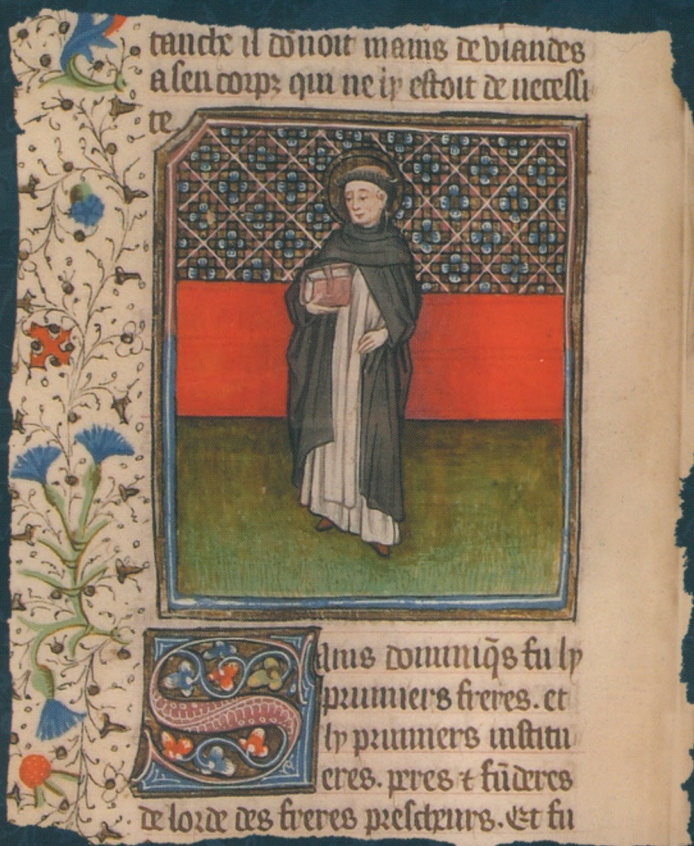 tanche il dōnoit mains de viandes
a sen corpz qui ne ly estoit de necessi
te
Sanis dominiq̄s fu ly
prumiers freres. et
ly prumiers institu
eres. peres ⁊ fūderes
de lorde des freres prescheurs. Et fu